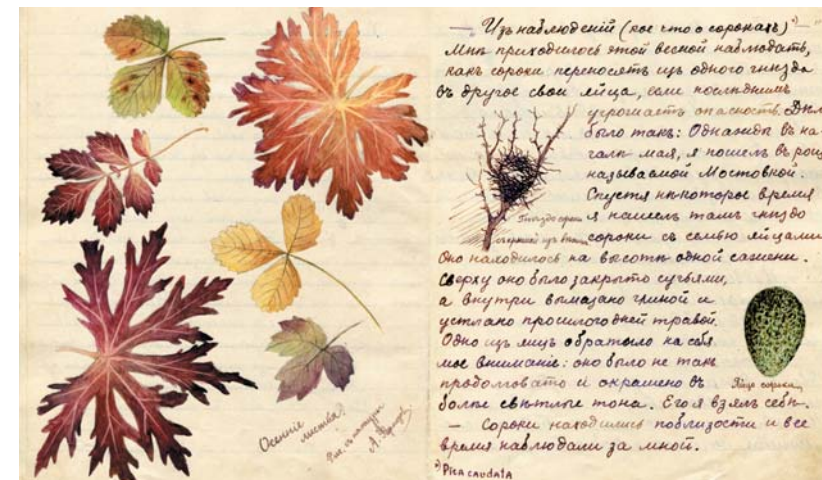 Осенніе
листья.
Рис. съ натуры
А.
— Изъ наблюденій (кое что о сорокахъ) *) —
Мнѣ приходилось этой весной наблюдать,
какъ сороки переносятъ изъ одного гнѣзда
въ другое свои яйца, если послѣднимъ
угрожаетъ опасность. Дѣло
было такъ: Однажды въ на-
чалѣ мая, я пошелъ въ рощ
называемой Мостовной.
Спустя нѣкоторое время
я нашелъ тамъ гнѣздо
сороки съ семью яйцами
Гнѣздо сороки
Оно находилось на высотѣ одной сажени.
Сверху оно было закрыто сучьями,
а внутри вымазано глиной и
устлано прошлогодней травой.
Одно изъ яицъ обратило на себя
мое вниманіе: оно было не такъ
продолговато и окрашено въ
болѣе свѣтлые тона. Его я взялъ себѣ.
Яйцо сороки
— Сороки находились поблизости и все
время наблюдали за мной.
*) Pica caudata